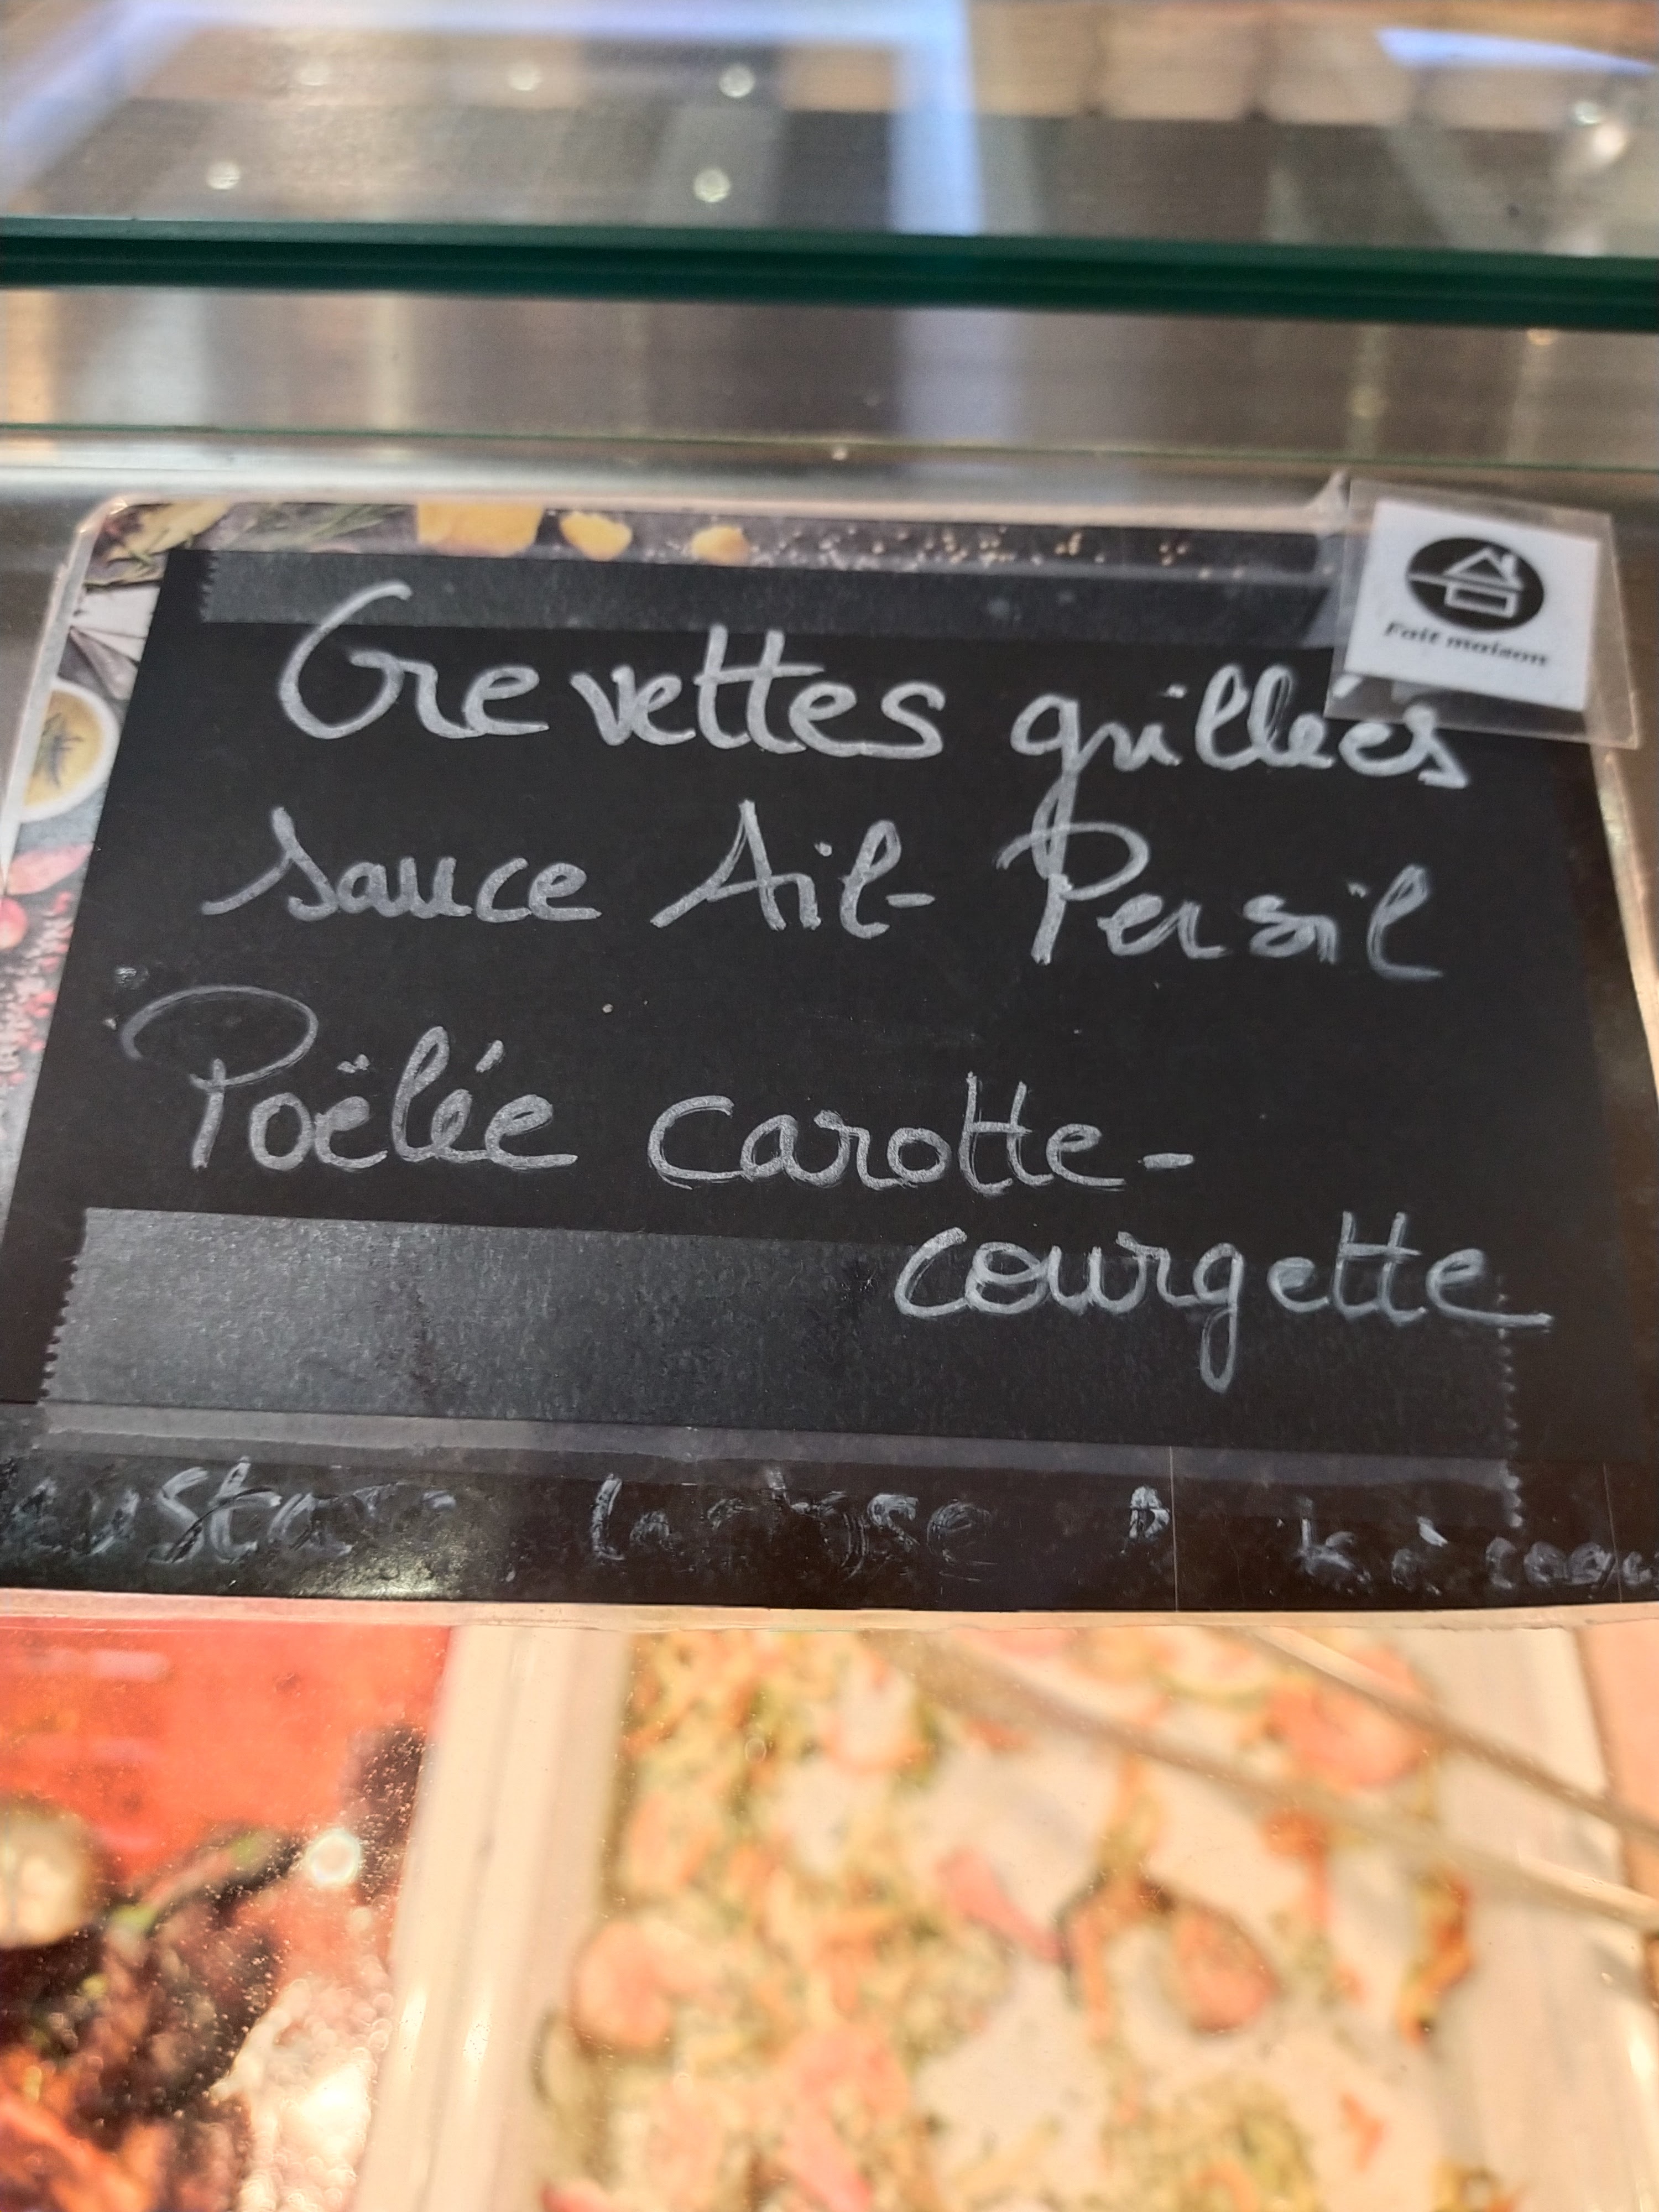 Fait maison
Crevettes grillées
sauce Ail- Persil
Poëlée carotte-
courgette